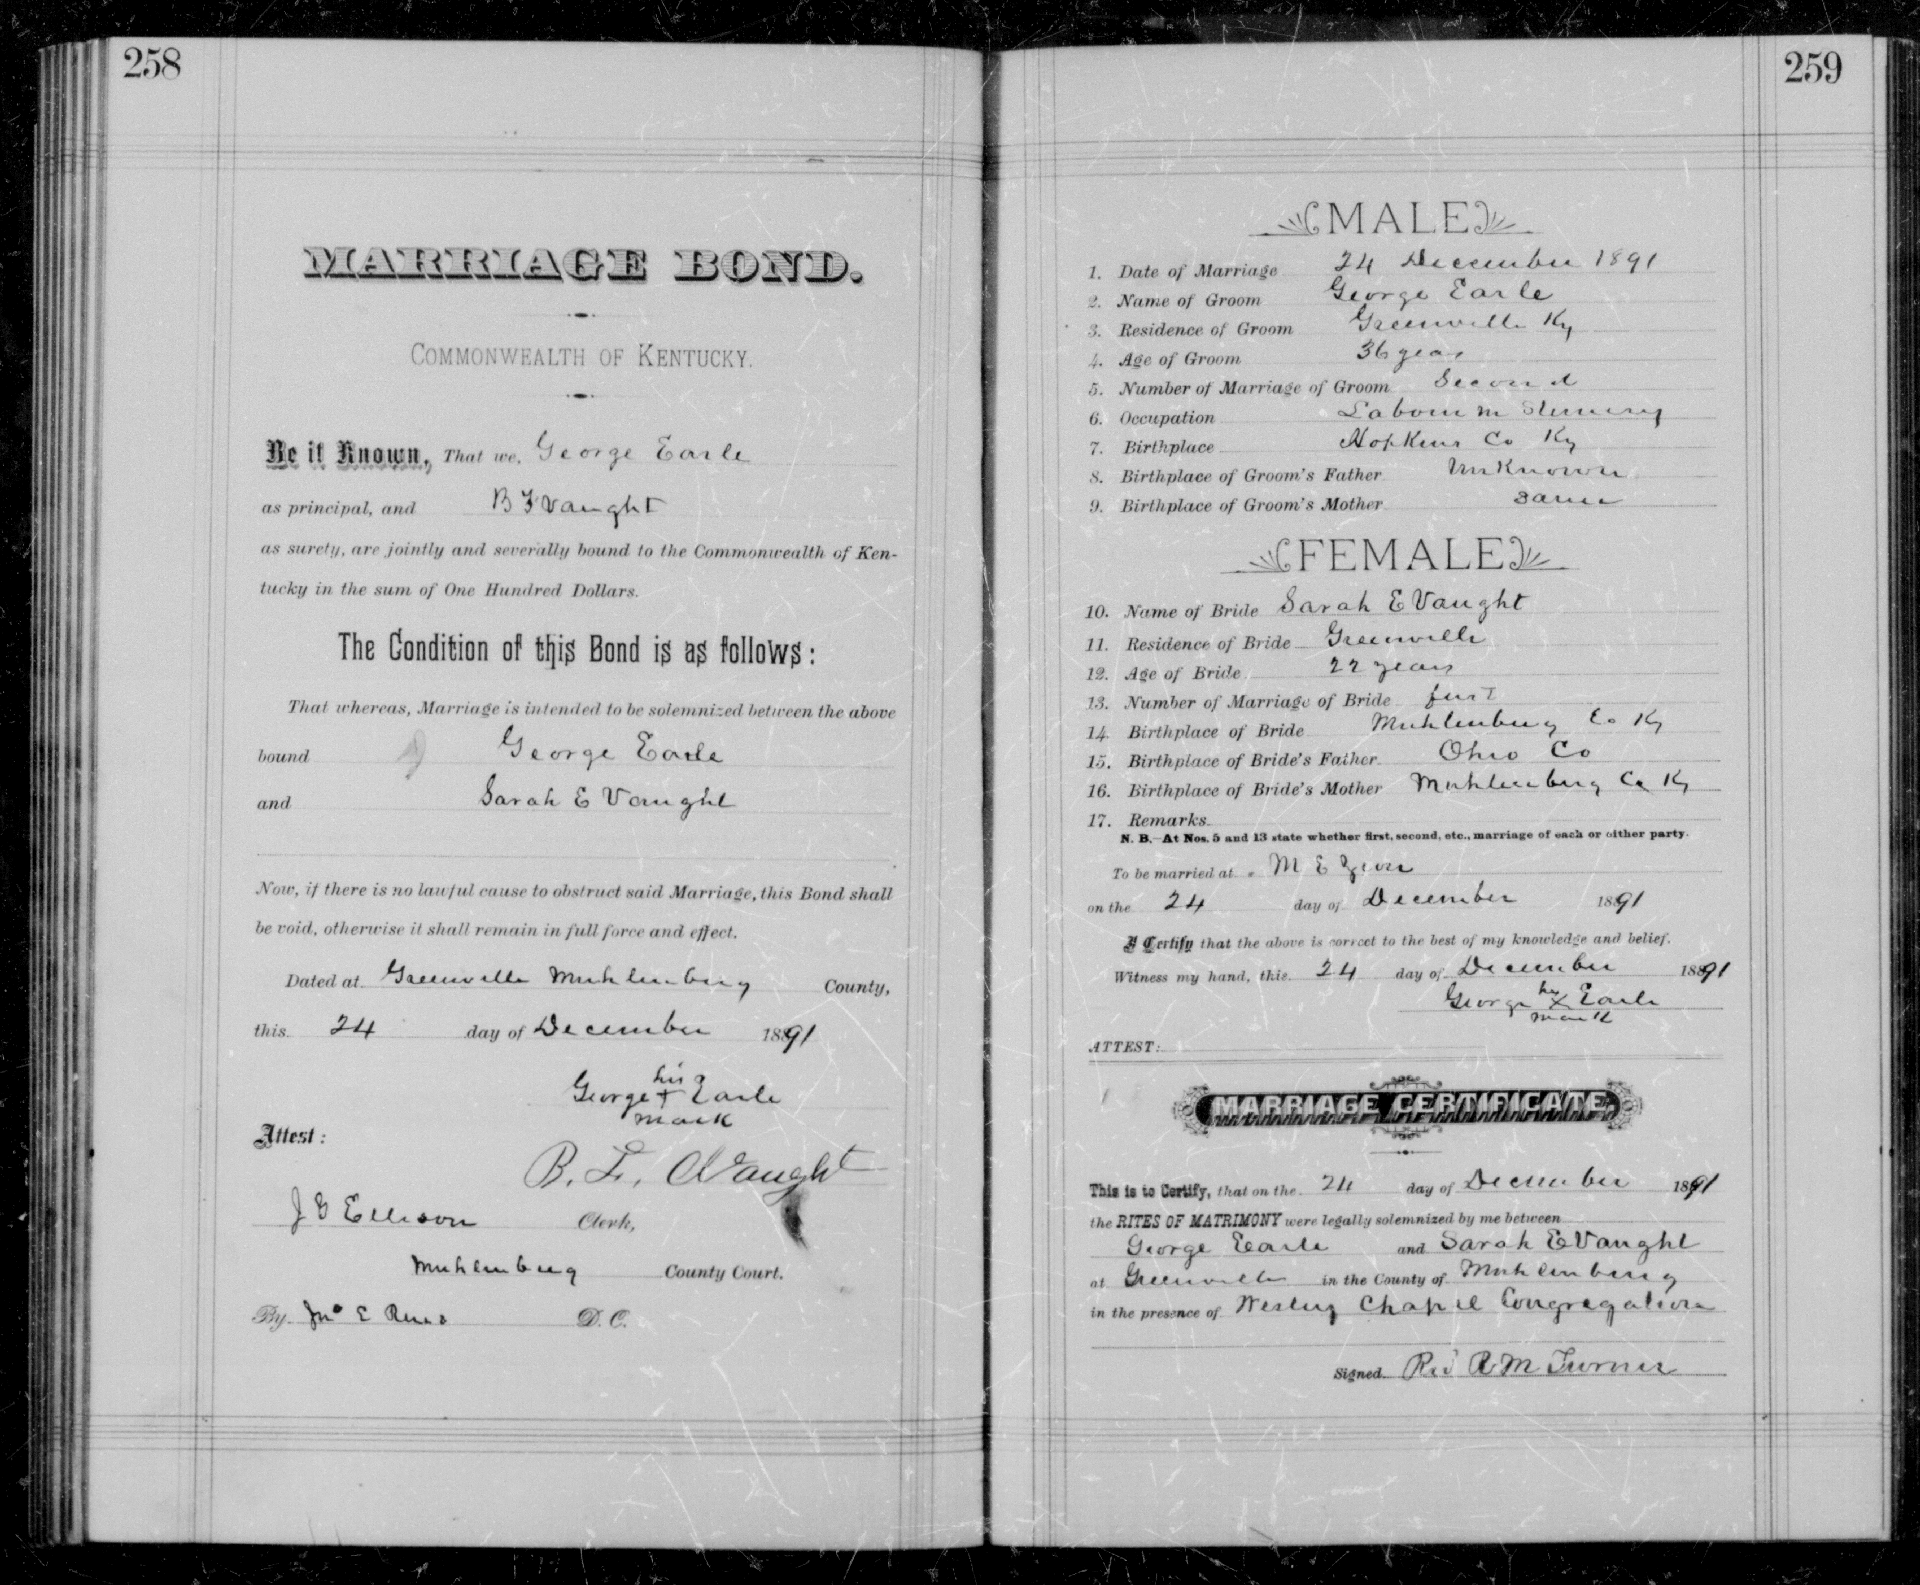 258
MARRIAGE BOND.
COMMONWEALTH OF KENTUCKY.
Be it Known, That we, George Earle
as principal, and B F Vaught
as surety, are jointly and severally bound to the Commonwealth of Ken-
tucky in the sum of One Hundred Dollars.
The Condition of this Bond is as follows:
That whereas, Marriage is intended to be solemnized between the above
bound George Earle
and Sarah E Vaught
Now, if there is no lawful cause to obstruct said Marriage, this Bond shall
be void, otherwise it shall remain in full force and effect.
Dated at Greenville Muhlenburg County,
this 24 day of December 1891
George his + mark Earle
Attest:
B. F. Vaught
J G Ellison Clerk,
Muhlenburg County Court.
By Jno E Reno D. C.
259
MALE
1. Date of Marriage 24 December 1891
2. Name of Groom George Earle
3. Residence of Groom Greenville Ky
4. Age of Groom 36 years
5. Number of Marriage of Groom Second
6. Occupation Labour in Stemery
7. Birthplace Hopkins Co Ky
8. Birthplace of Groom's Father Unknown
9. Birthplace of Groom's Mother Same
FEMALE
10. Name of Bride Sarah E Vaught
11. Residence of Bride Greenville
12. Age of Bride 22 years
13. Number of Marriage of Bride first
14. Birthplace of Bride Muhlenburg Co Ky
15. Birthplace of Bride's Father Ohio Co
16. Birthplace of Bride's Mother Muhlenburg Co Ky
17. Remarks
N. B.—At Nos. 5 and 13 state whether first, second, etc., marriage of each or either party.
To be married at M E Zion
on the 24 day of December 1891
I Certify that the above is correct to the best of my knowledge and belief.
Witness my hand, this 24 day of December 1891
George his x mark Earle
ATTEST:
MARRIAGE CERTIFICATE
This is to Certify, that on the 24 day of December 1891
the RITES OF MATRIMONY were legally solemnized by me between
George Earle and Sarah E Vaught
at Greenville in the County of Muhlenburg
in the presence of Wesley Chapel Congregation
Signed Rev R M Turner